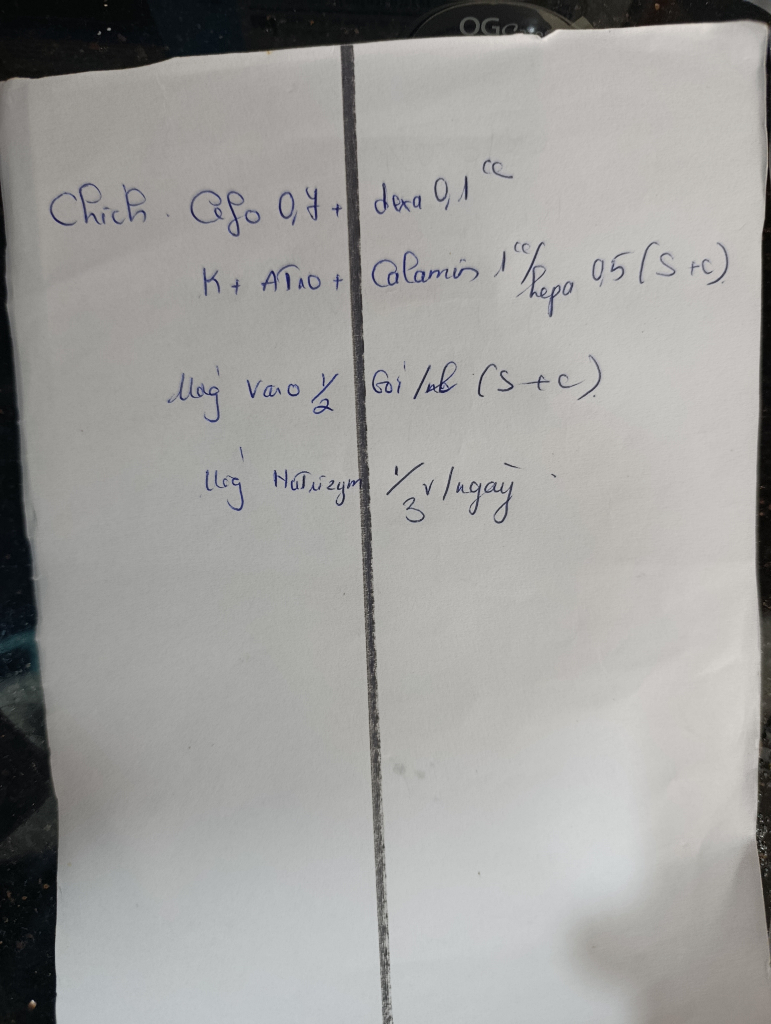 OG
Chích Cefo 0,7 + dexa 0,1 cc
K + ATro + Calamin 1 cc / hepa 0,5 (S + C)
Uống Varo 1/2 Gói / lần (S + C)
Uống Nutrizym 1/3 v / ngày